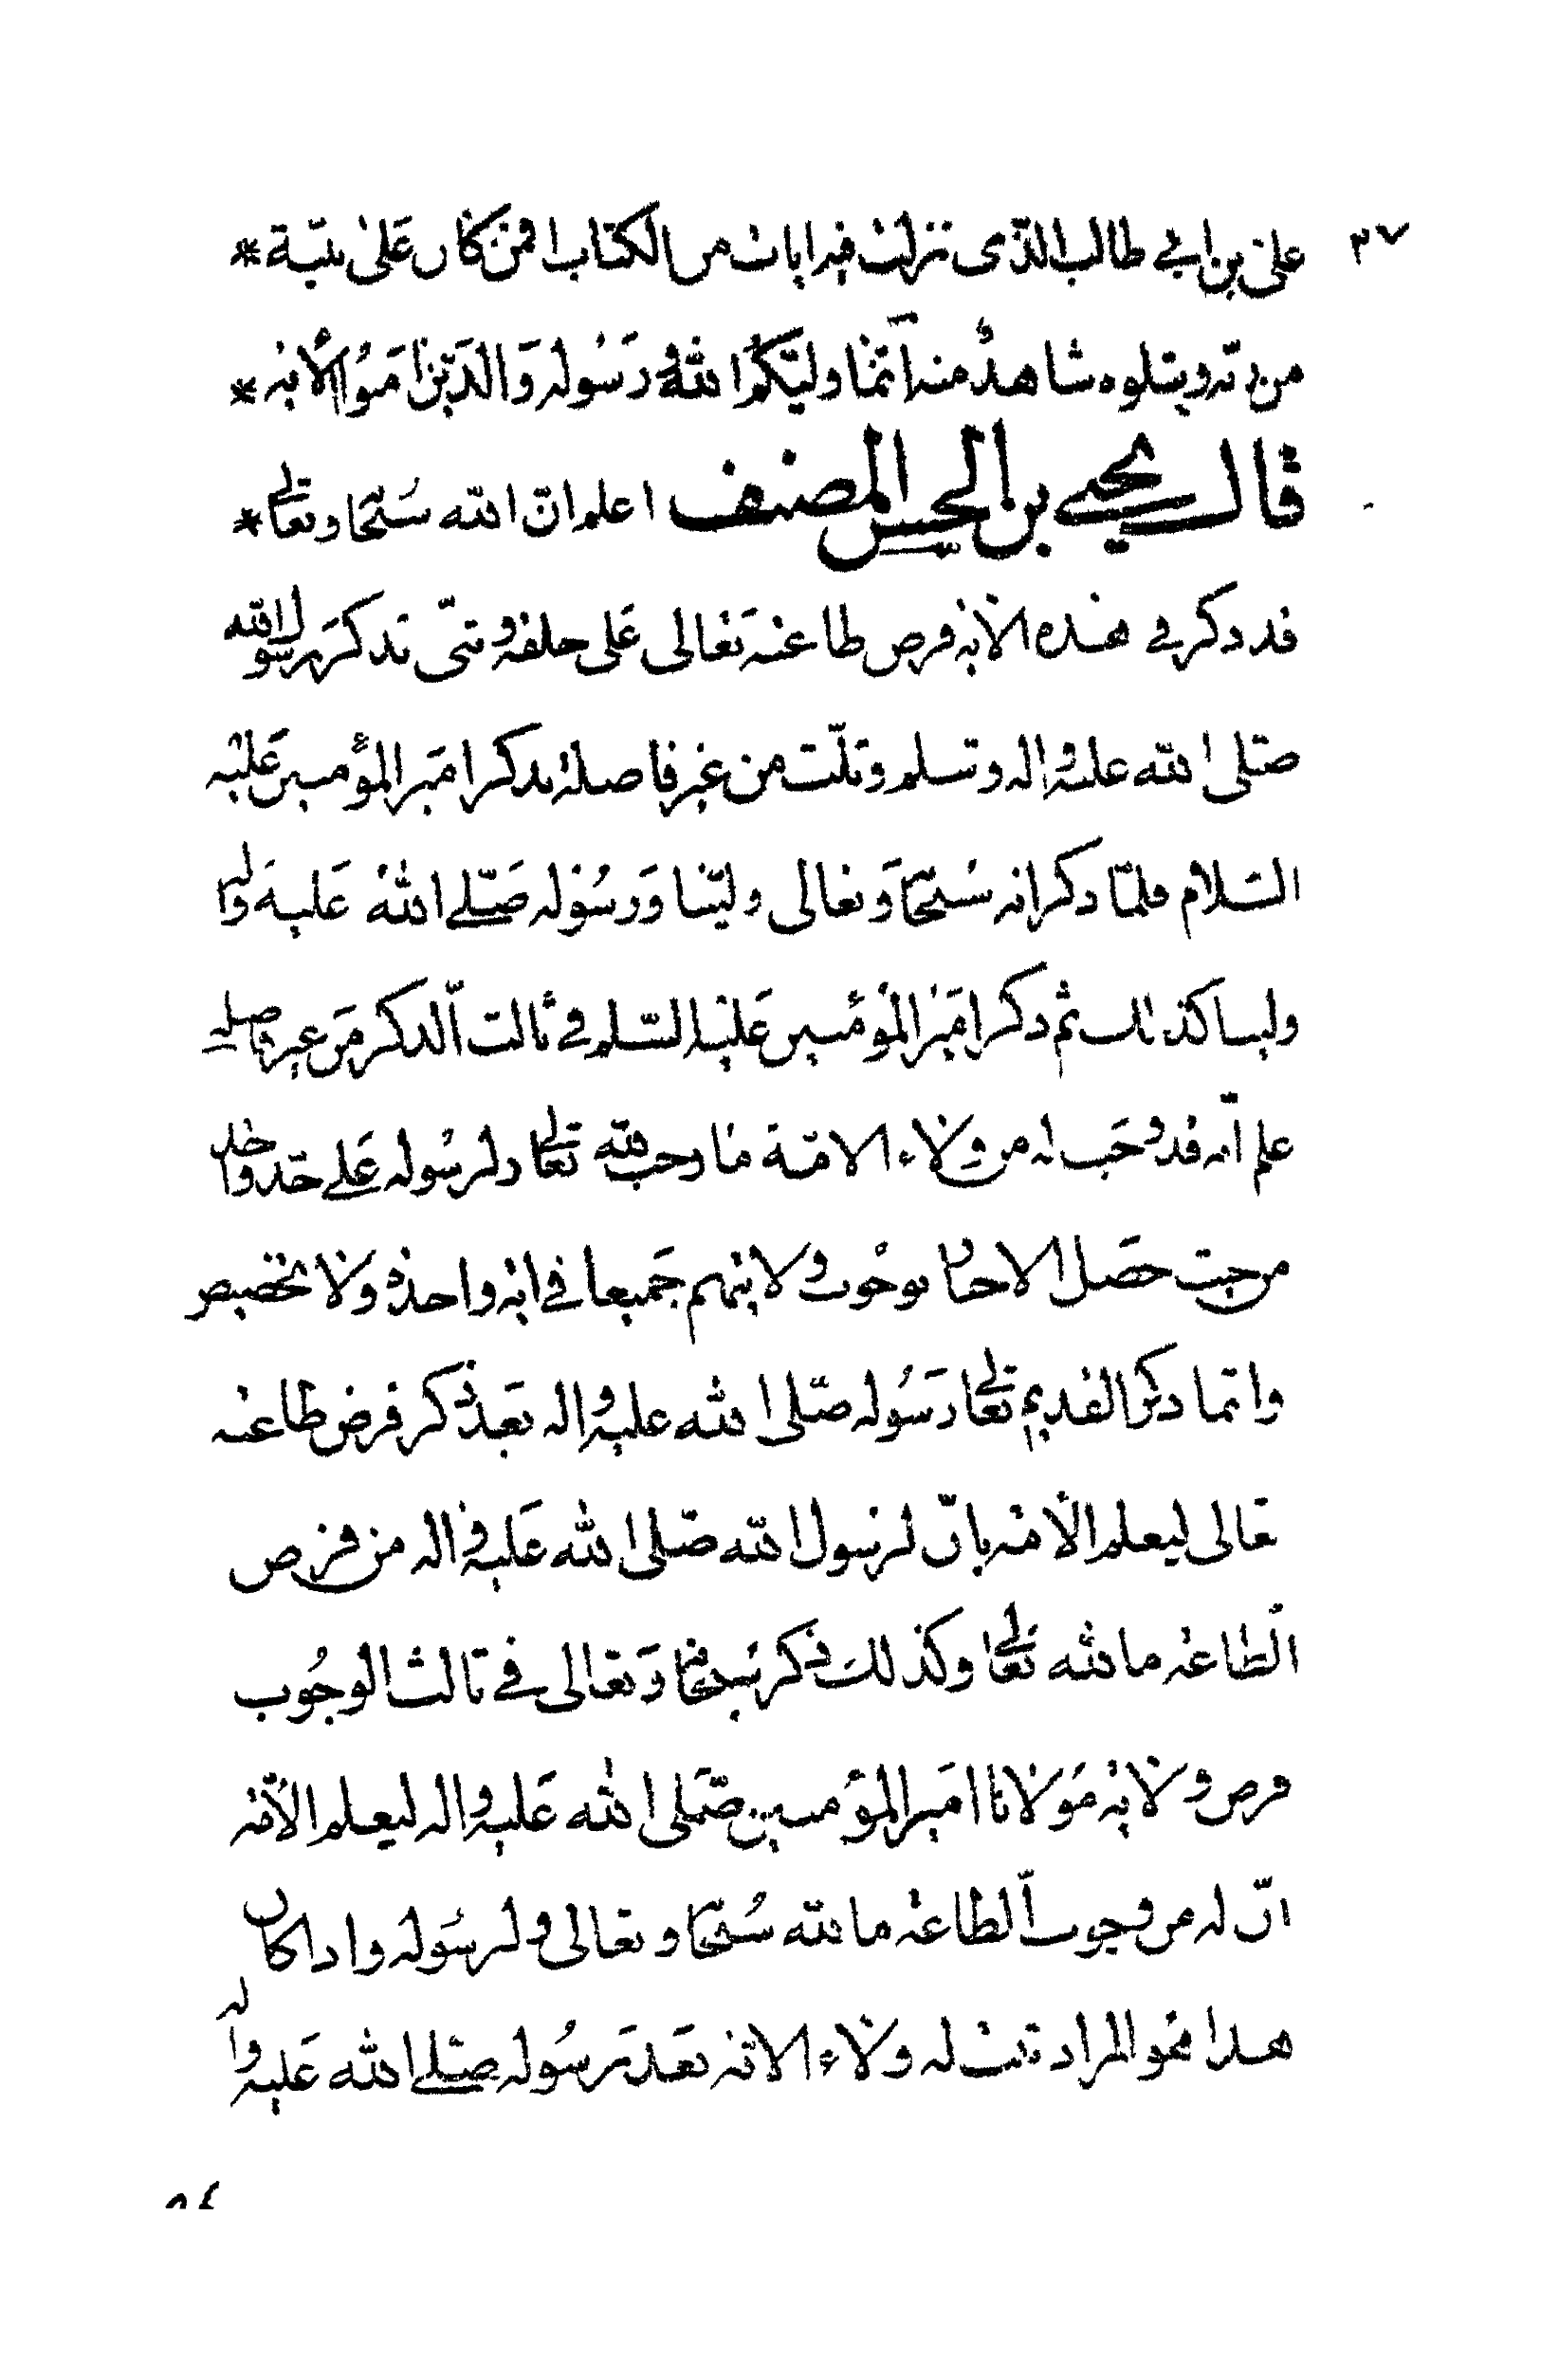 ٣٧
على بن ابي طالب الذى نزلت فيه ايات من الكتاب افمن كان على بينة *
من ربه ويتلوه شاهد منه انما وليكم الله ورسوله والذين امنوا الاية *
قال يحيى بن الحسن المصنف اعلم ان الله سبحانه وتعالى *
قد ذكر في هذه الاية فرض طاعته تعالى على خلقه وثنى بذكر رسول الله
صلى الله عليه واله وسلم وثلث من غير فاصلة بذكر امير المؤمنين عليه
السلام فلما ذكر انه سبحانه وتعالى ولينا ورسوله صلى الله عليه واله
ولينا كذلك ثم ذكر امير المؤمنين عليه السلم في ثالث الذكر من غير فاصله
علم انه قد وجب له من ولاء الامة ما وجب لله تعالى ولرسوله على حد واحد
من حيث حصل الاخبار بوجوب ولايتهم جميعا في اية واحدة ولا تخصيص
وانما ذكر القديم تعالى رسوله صلى الله عليه واله بعد ذكر فرض طاعته
تعالى ليعلم الامة بان لرسول الله صلى الله عليه واله من فرض
الطاعة ما لله تعالى وكذلك ذكر سبحانه وتعالى في ثالث الوجوب
فرض ولاية مولانا امير المؤمنين صلى الله عليه واله ليعلم الامة
ان له من وجوب الطاعة ما لله سبحانه وتعالى ولرسوله واذا كان
هذا هو المراد ثبت له ولاء الامة بعد رسوله صلى الله عليه واله